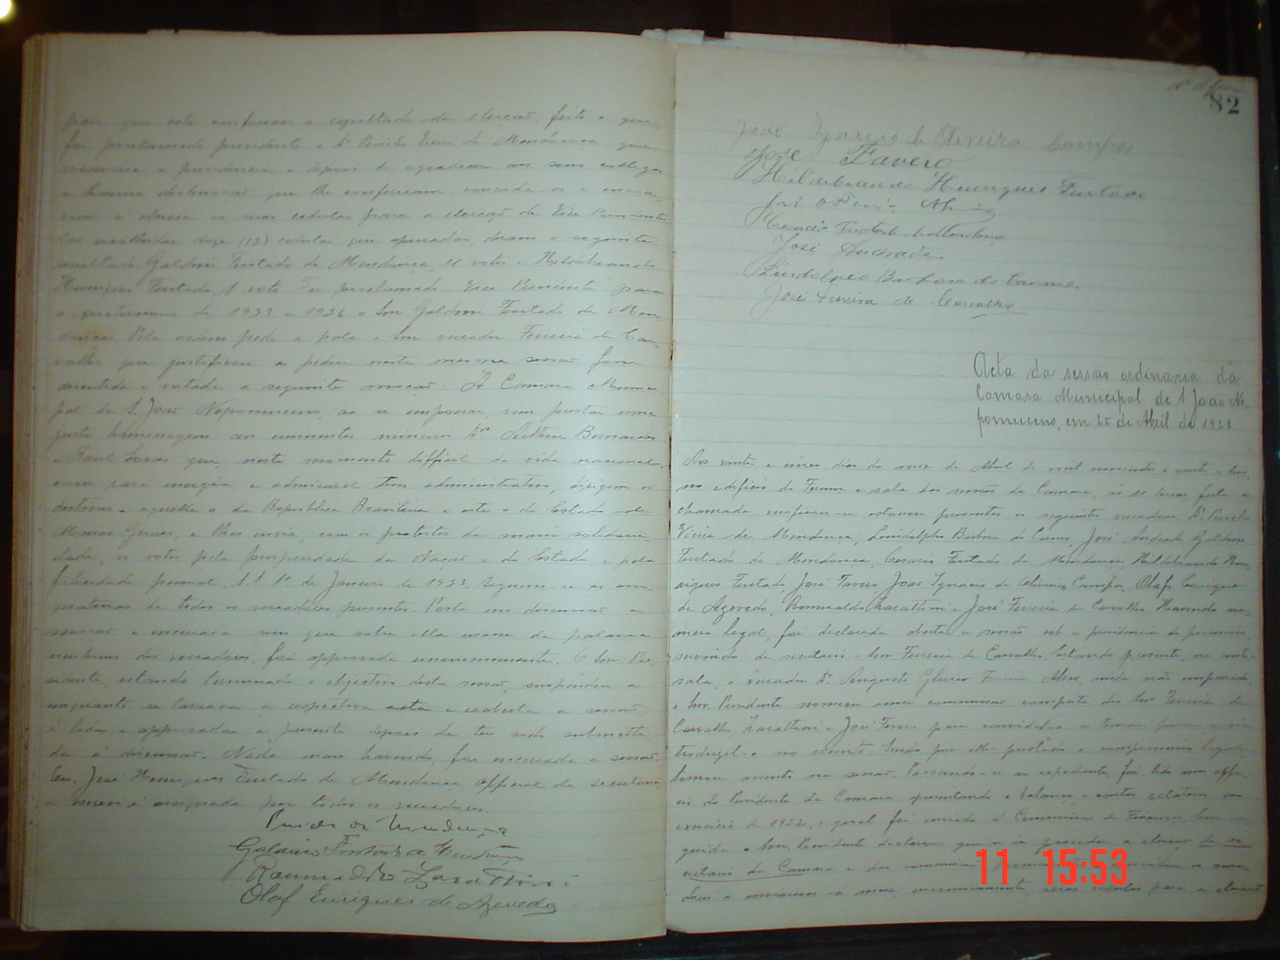 para que este confirmem o resultado da eleição, feito o que,
foi proclamado presidente o Dr Pericles Vieira de Mendonça que
assumiu a presidencia e depois de agradecer aos seus collegas
a honrosa que lhe conferiram, convida-os a
a as suas cedulas para a eleição de Vice Presidente
doze (12) cedulas que apuradas, deram o seguinte
resultado Galdino Furtado de Mendonça, 11 votos e Hildebrando
Henriques Furtado, 1 voto Foi proclamado Vice Presidente para
o quatriennio de 1923 a 1926 o Snr Galdino Furtado de Men
donça. Pela ordem pede a palavra o snr vereador Ferreira de Car
valho que justificou e pediu nesta mesma sessão fosse
e votada a seguinte moção: A Camara Munici
pal de S. João Nepomuceno, ao se empossar, vem prestar uma
justa homenagem aos eminentes mineiros Drs Arthur Bernardes
e Raul Soares que, neste momento difficil da vida nacional,
com rara energia e admiravel tino administrativo, dirigem os
destinos - aquelle o da Republica Brasileira e este o do Estado de
Minas Geraes, e lhes envia, com os protestos de maior solidarie
dade, os votos pela prosperidade da Nação e do Estado e pela
felicidade pessoal. S. S. 1º de Janeiro de 1923 Seguem-se as assi
gnaturas de todos os vereadores presentes. Posta em discussão a
moção e encerrada sem que sobre ella usasse da palavra
nenhum dos vereadores, foi approvada unanimemente. O Snr. Pre
sidente, estando terminado o objectivo desta sessão, suspendeu-a
enquanto se lavrava a respectiva acta e reaberta a sessão
é lida e approvada a presente depois de ter sido submetti
da á discussão. Nada mais havendo, foi encerrada a sessão
Eu, José Henriques Furtado de Mendonça official da secretaria
a escrevi e assignada por todos os vereadores.
Pericles de Mendonça
Galdino Furtado de Mendonça
Romualdo Zarattini
Olaf Enriques de Azevedo
82
João Ignacio de Oliveira Campos
José Favero
Hildebrando Henriques Furtado
José
Furtado
José Andrade
Lindolpho Barbosa do Carmo
José Ferreira de Carvalho
Acta da sessão ordinaria da
Camara Municipal de S. João Ne
pomuceno, em 25 de Abril de 1923
Aos vinte e cinco dias do mez de Abril de mil novecentos e vinte e tres,
no edificio do Forum e sala das sessões da Camara, ás 12 horas, feita a
chamada verificou-se estarem presentes os seguintes vereadores Dr Pericles
Vieira de Mendonça, Lindolpho Barbosa do Carmo, José Andrade, Galdino
Furtado de Mendonça, Furtado de Mendonça, Hildebrando Hen
riques Furtado, José Favero, João Ignacio de Oliveira Campos, Olaf Enriques
de Azevedo, Romualdo Zarattini e José Ferreira de Carvalho Havendo nu
mero legal, foi declarada aberta a sessão sob a presidencia do primeiro,
servindo de secretario o Snr Ferreira de Carvalho. Estando presente, na ante-
sala, o vereador Dr. Augusto Glorio Ferreira Alves, ainda não empossado,
o Snr. Presidente nomeou uma commissão composta dos Snrs Ferreira de
Carvalho, Zarattini e José Favero para convidal-o a tomar posse e in
troduzil-o no recinto Tendo por elle prestado o compromisso legal
tomou assento na sessão. Passando-se ao expediente, foi lido um offi
cio do Presidente da Camara apresentando o balanço e contas relativo ao
exercicio de 1922, o qual foi enviado á Commissão de Finanças. Em se
guida o Snr. Presidente declarou que se ia proceder a eleição de se
cretario da Camara e das commissões
cedulas para a eleição
11 15:53